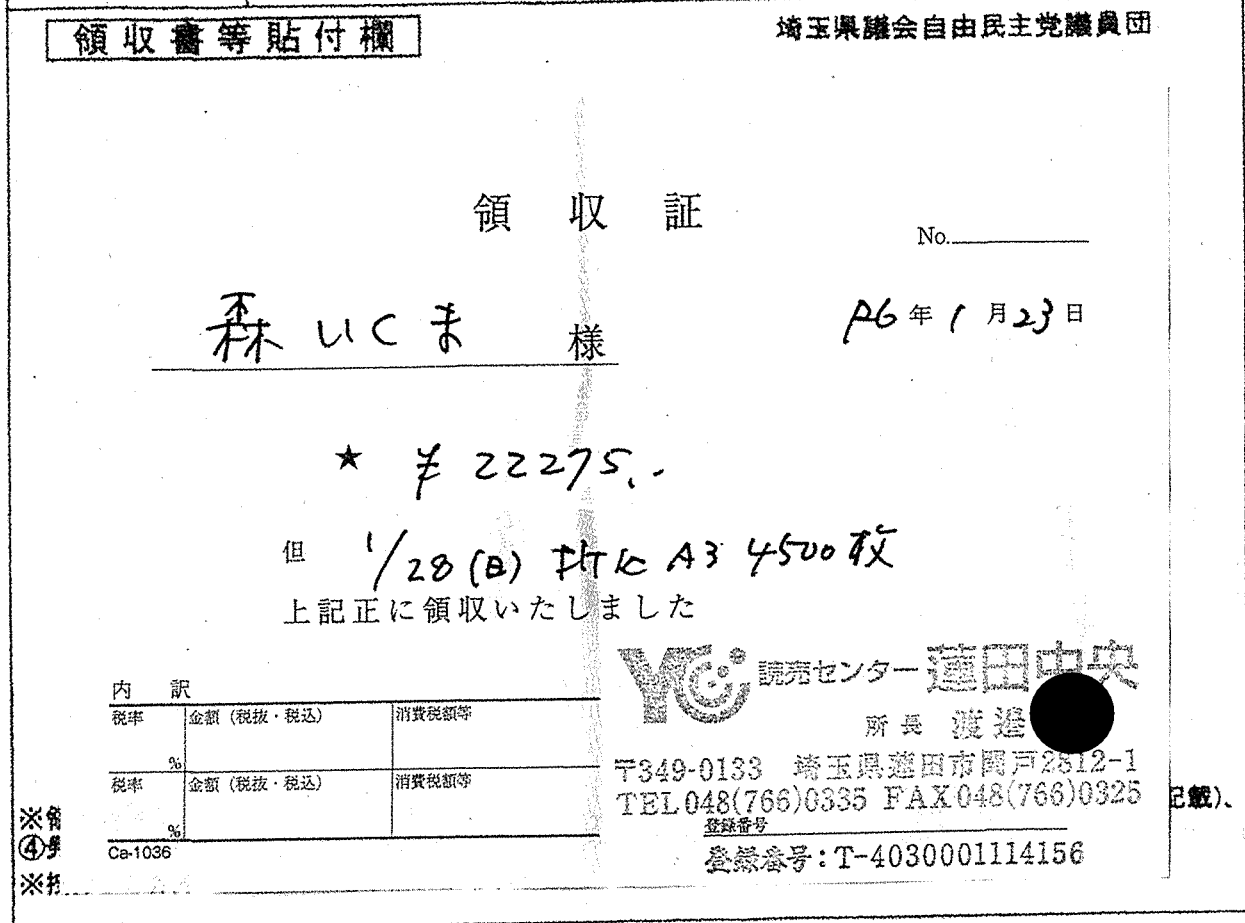 領収書等貼付欄
埼玉県議会自由民主党議員団
領収証
No.
森いくま 様
R6年1月23日
★ ¥22275.-
但 1/28(日) 折代 A3 4500枚
上記正に領収いたしました
内訳
税率 金額(税抜・税込) 消費税額等
%
税率 金額(税抜・税込) 消費税額等
%
Ca-1036
YC 読売センター 蓮田中央
所長 渡邉
〒349-0133 埼玉県蓮田市関戸2812-1
TEL048(766)0335 FAX048(766)0325
登録番号
登録番号:T-4030001114156
記載)、
※領
④
※